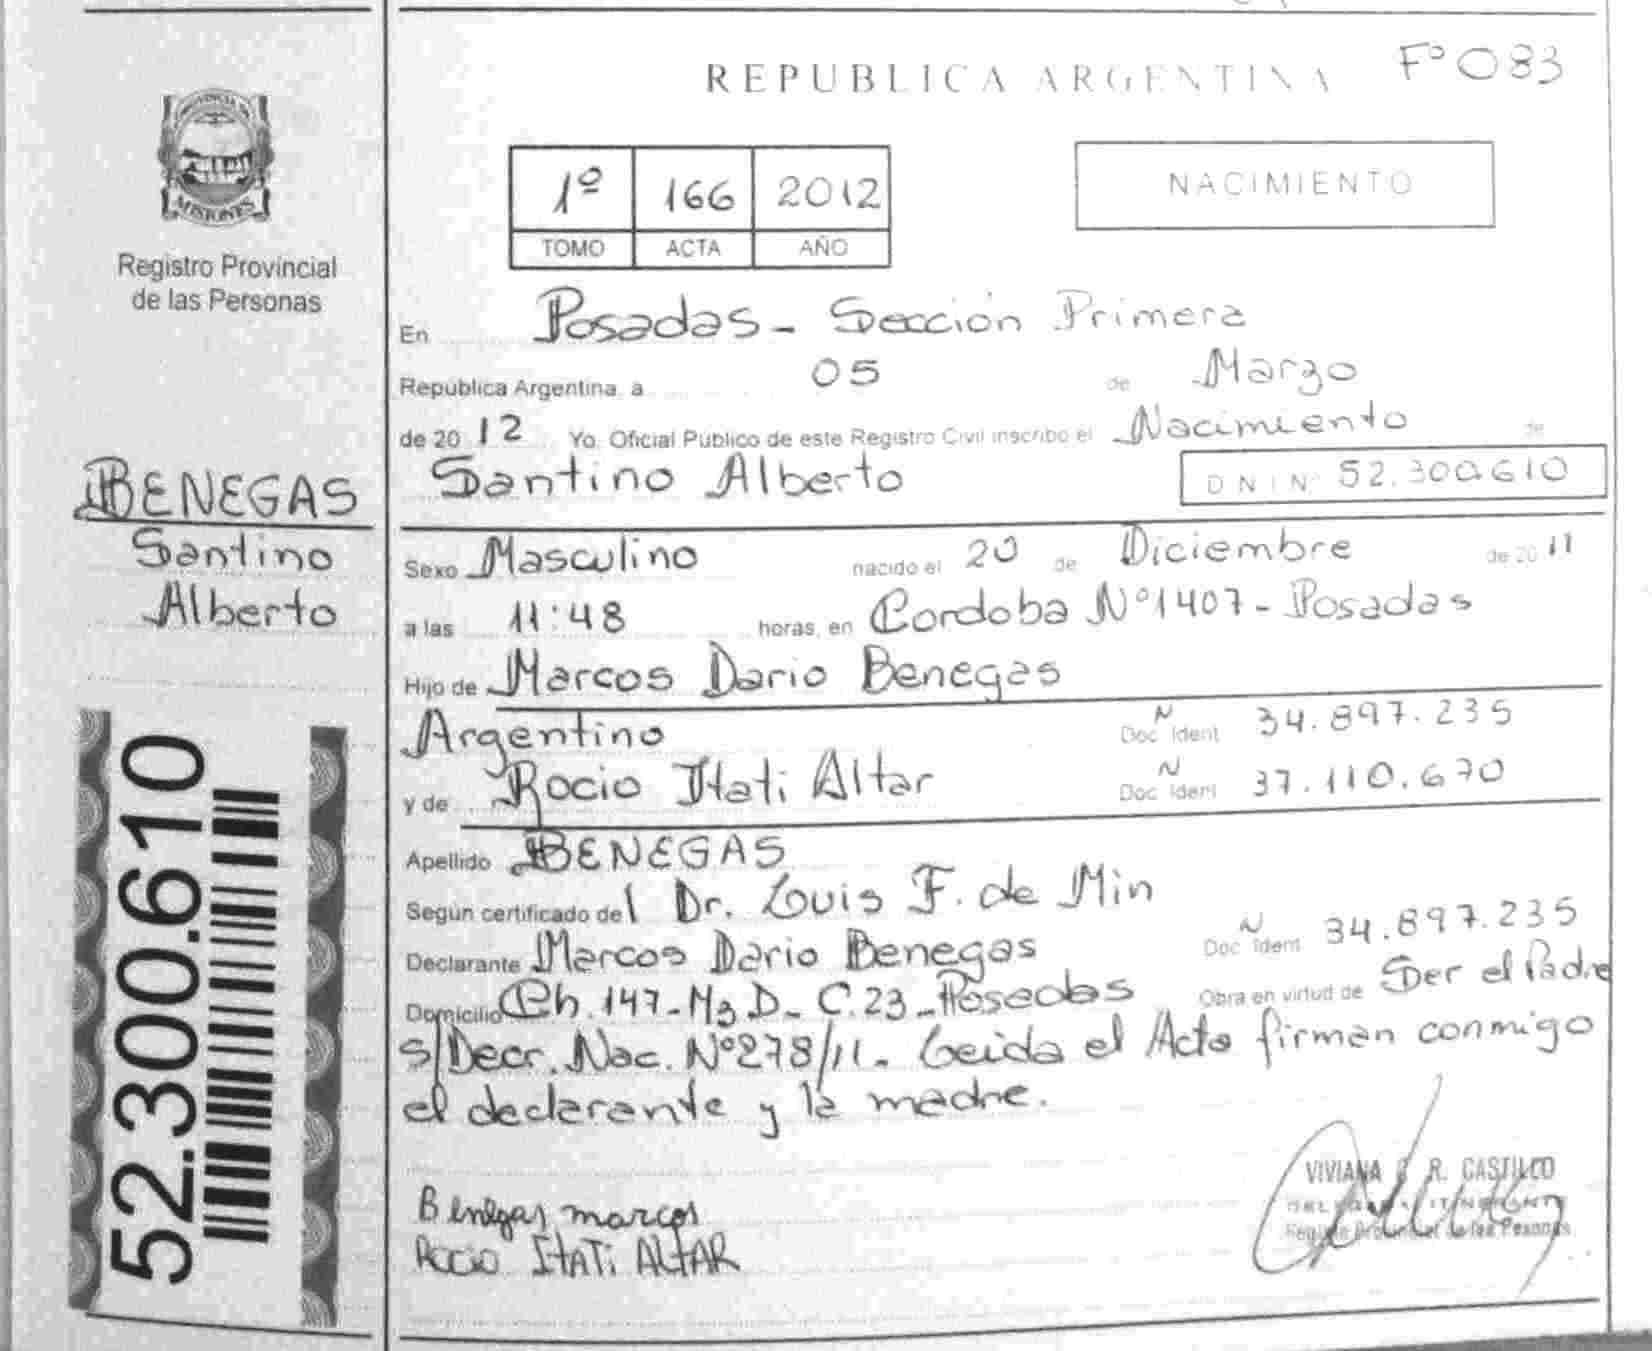 REPUBLICA ARGENTINA Fº 083
PROVINCIA DE
MISIONES
Registro Provincial
de las Personas
1º 166 2012
TOMO ACTA AÑO
NACIMIENTO
En Posadas - Sección Primera
República Argentina, a 05 de Marzo
de 20 12 Yo, Oficial Público de este Registro Civil inscribo el Nacimiento de
Santino Alberto DNI Nº 52.300.610
BENEGAS
Santino
Alberto
Sexo Masculino nacido el 20 de Diciembre de 20 11
a las 11:48 horas, en Cordoba Nº1407 - Posadas
Hijo de Marcos Dario Benegas
Argentino N Doc Ident 34.897.235
y de Rocio Itati Altar N Doc Ident 37.110.670
Apellido BENEGAS
Según certificado del Dr. Louis F. de Min
Declarante Marcos Dario Benegas N Doc Ident 34.897.235
Domicilio Ch. 147 - Mz D - C. 23 - Posadas Obra en virtud de Ser el Padre
s/Decr. Nac. Nº278/11. Leida el Acta firman conmigo
el declarante y la madre.
Benegas marcos
Rocio ITATI ALTAR
VIVIANA R. CASTILLO
ITINERANTE
Registro Provincial de las Personas
52.300.610